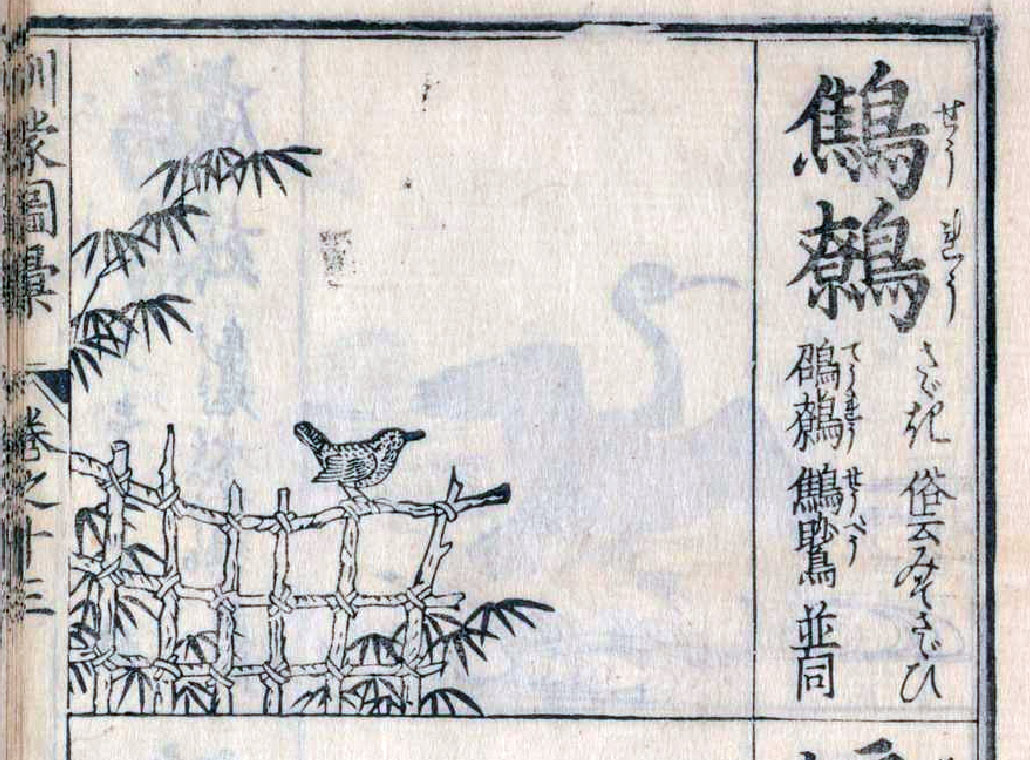 鷦鷯
せう れう
さゞき 俗云みそさゞひ
鷯 鷦 並同
てうれう せうべう
訓蒙圖彙 卷之十三